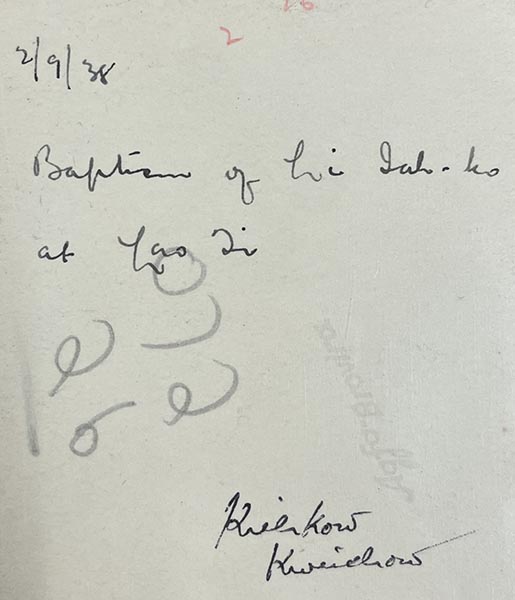 2
2/9/38
Baptism of Li Tah-ko
at Yao Ti
Kienkow
Kweichow